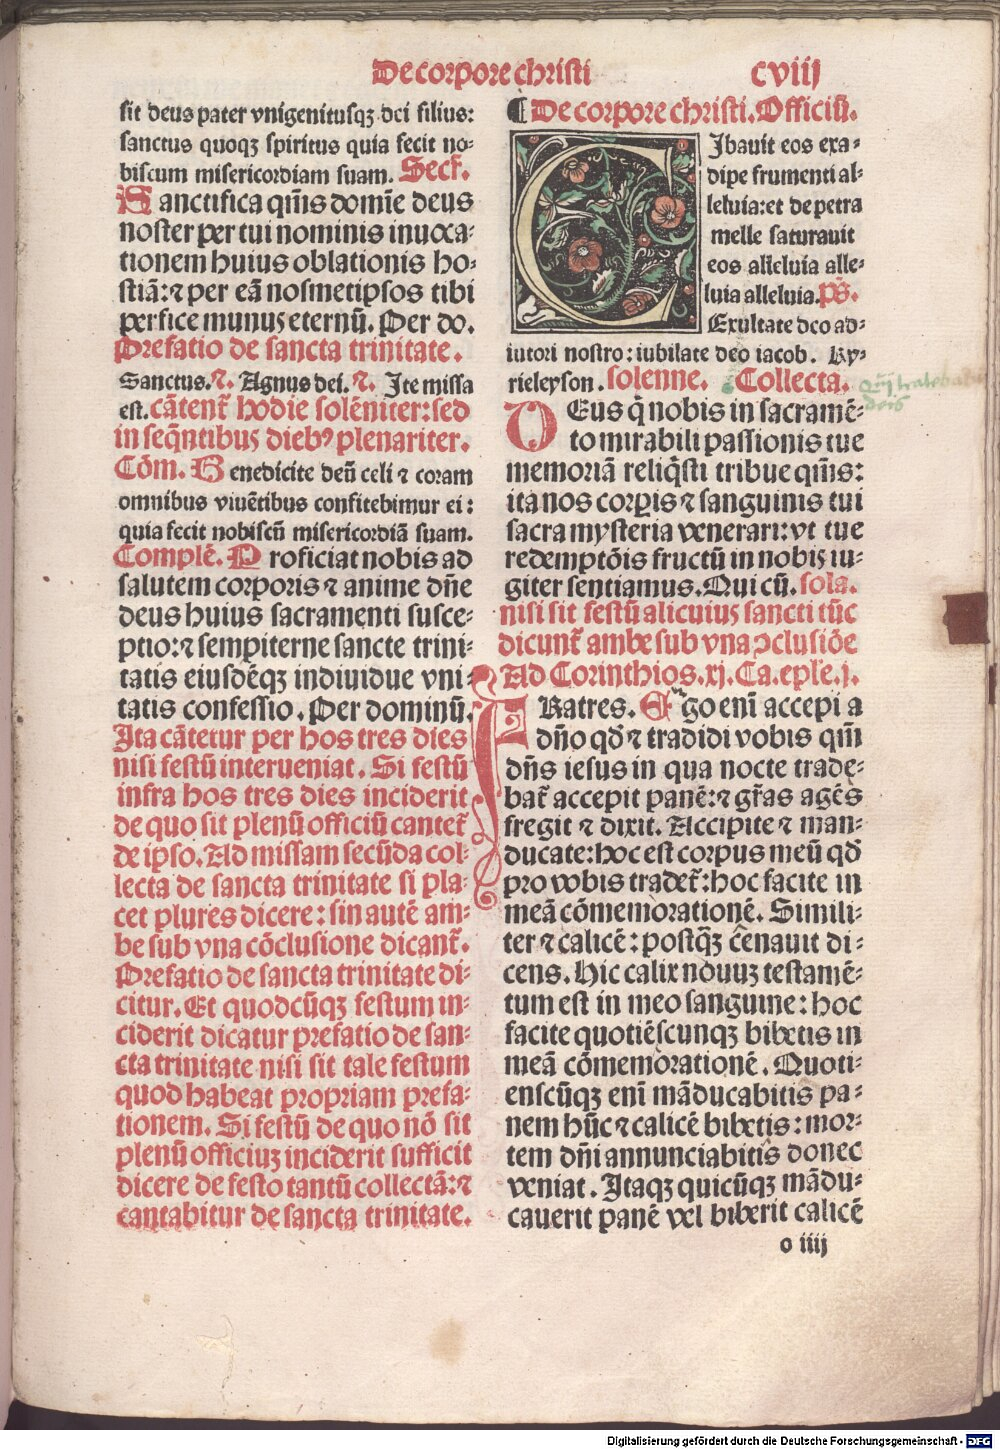 De corpore christi
cviij
sit deus pater vnigenitusqꝫ dei filius:
sanctus quoqꝫ spiritus quia fecit no⸗
biscum misericordiam suam. Secr̃.
Sanctifica qm̃s domĩe deus
noster per tui nominis inuoca⸗
tionem huius oblationis ho⸗
stiã: ⁊ per eã nosmetipsos tibi
perfice munus eternũ. Per do.
Prefatio de sancta trinitate.
Sanctus. ⁊. Agnus dei. ⁊. Ite missa
est. cãtent᷑ hodie solẽniter: sed
in seq̃ntibus diebꝰ plenariter.
Cõm. Benedicite deũ celi ⁊ coram
omnibus viuẽtibus confitebimur ei:
quia fecit nobiscũ misericordiã suam.
Complẽ. Proficiat nobis ad
salutem corporis ⁊ anime dñe
deus huius sacramenti susce⸗
ptio: ⁊ sempiterne sancte trini⸗
tatis eiusdẽqꝫ indiuidue vni⸗
tatis confessio. Per dominũ.
Ita cãtetur per hos tres dies
nisi festũ interueniat. Si festũ
infra hos tres dies inciderit
de quo sit plenũ officiũ cantet᷑
de ipso. Ad missam secũda col⸗
lecta de sancta trinitate si pla⸗
cet plures dicere: sin autẽ am⸗
be sub vna cõclusione dicant᷑.
Prefatio de sancta trinitate di⸗
citur. Et quodcũqꝫ festum in⸗
ciderit dicatur prefatio de san⸗
cta trinitate nisi sit tale festum
quod habeat propriam prefa⸗
tionem. Si festũ de quo nõ sit
plenũ officiuꝫ inciderit sufficit
dicere de festo tantũ collectã: ⁊
cantabitur de sancta trinitate.
¶ De corpore christi. Officiũ.
Cibauit eos exa⸗
dipe frumenti al⸗
leluia: et de petra
melle saturauit
eos alleluia alle⸗
luia alleluia. pš.
Exultate deo ad⸗
iutori nostro: iubilate deo iacob. Ky⸗
rieleyson. solenne. Collecta.
DEus q̃ nobis in sacramẽ⸗
to mirabili passionis tue
memoriã reliq̃sti tribue qm̃s:
ita nos corpis ⁊ sanguinis tui
sacra mysteria venerari: vt tue
redemptõis fructũ in nobis iu⸗
giter sentiamus. Qui cũ. sola.
nisi sit festũ alicuius sancti tũc
dicunt᷑ ambe sub vna ꝯclusiõe
Ad Corinthios. xj. Ca. eplẽ. j.
FRatres. Ego enĩ accepi a
dño qđ ⁊ tradidi vobis qm̃
dñs iesus in qua nocte trade⸗
bat᷑ accepit panẽ: ⁊ gr̃as agẽs
fregit ⁊ dixit. Accipite ⁊ man⸗
ducate: hoc est corpus meũ qđ
pro vobis tradet᷑: hoc facite in
meã cõmemorationẽ. Simili⸗
ter ⁊ calicẽ: postq̃ꝫ cenauit di⸗
cens. Hic calix nouuꝫ testamẽ⸗
tum est in meo sanguine: hoc
facite quotiẽscunqꝫ bibetis in
meã cõmemorationẽ. Quoti⸗
enscũqꝫ enĩ mãducabitis pa⸗
nem hũc ⁊ calicẽ bibetis: mor⸗
tem dñi annunciabitis donec
veniat. Itaqꝫ quicũqꝫ mãdu⸗
cauerit panẽ vel biberit calicẽ
o iiij
Digitalisierung gefördert durch die Deutsche Forschungsgemeinschaft - DFG